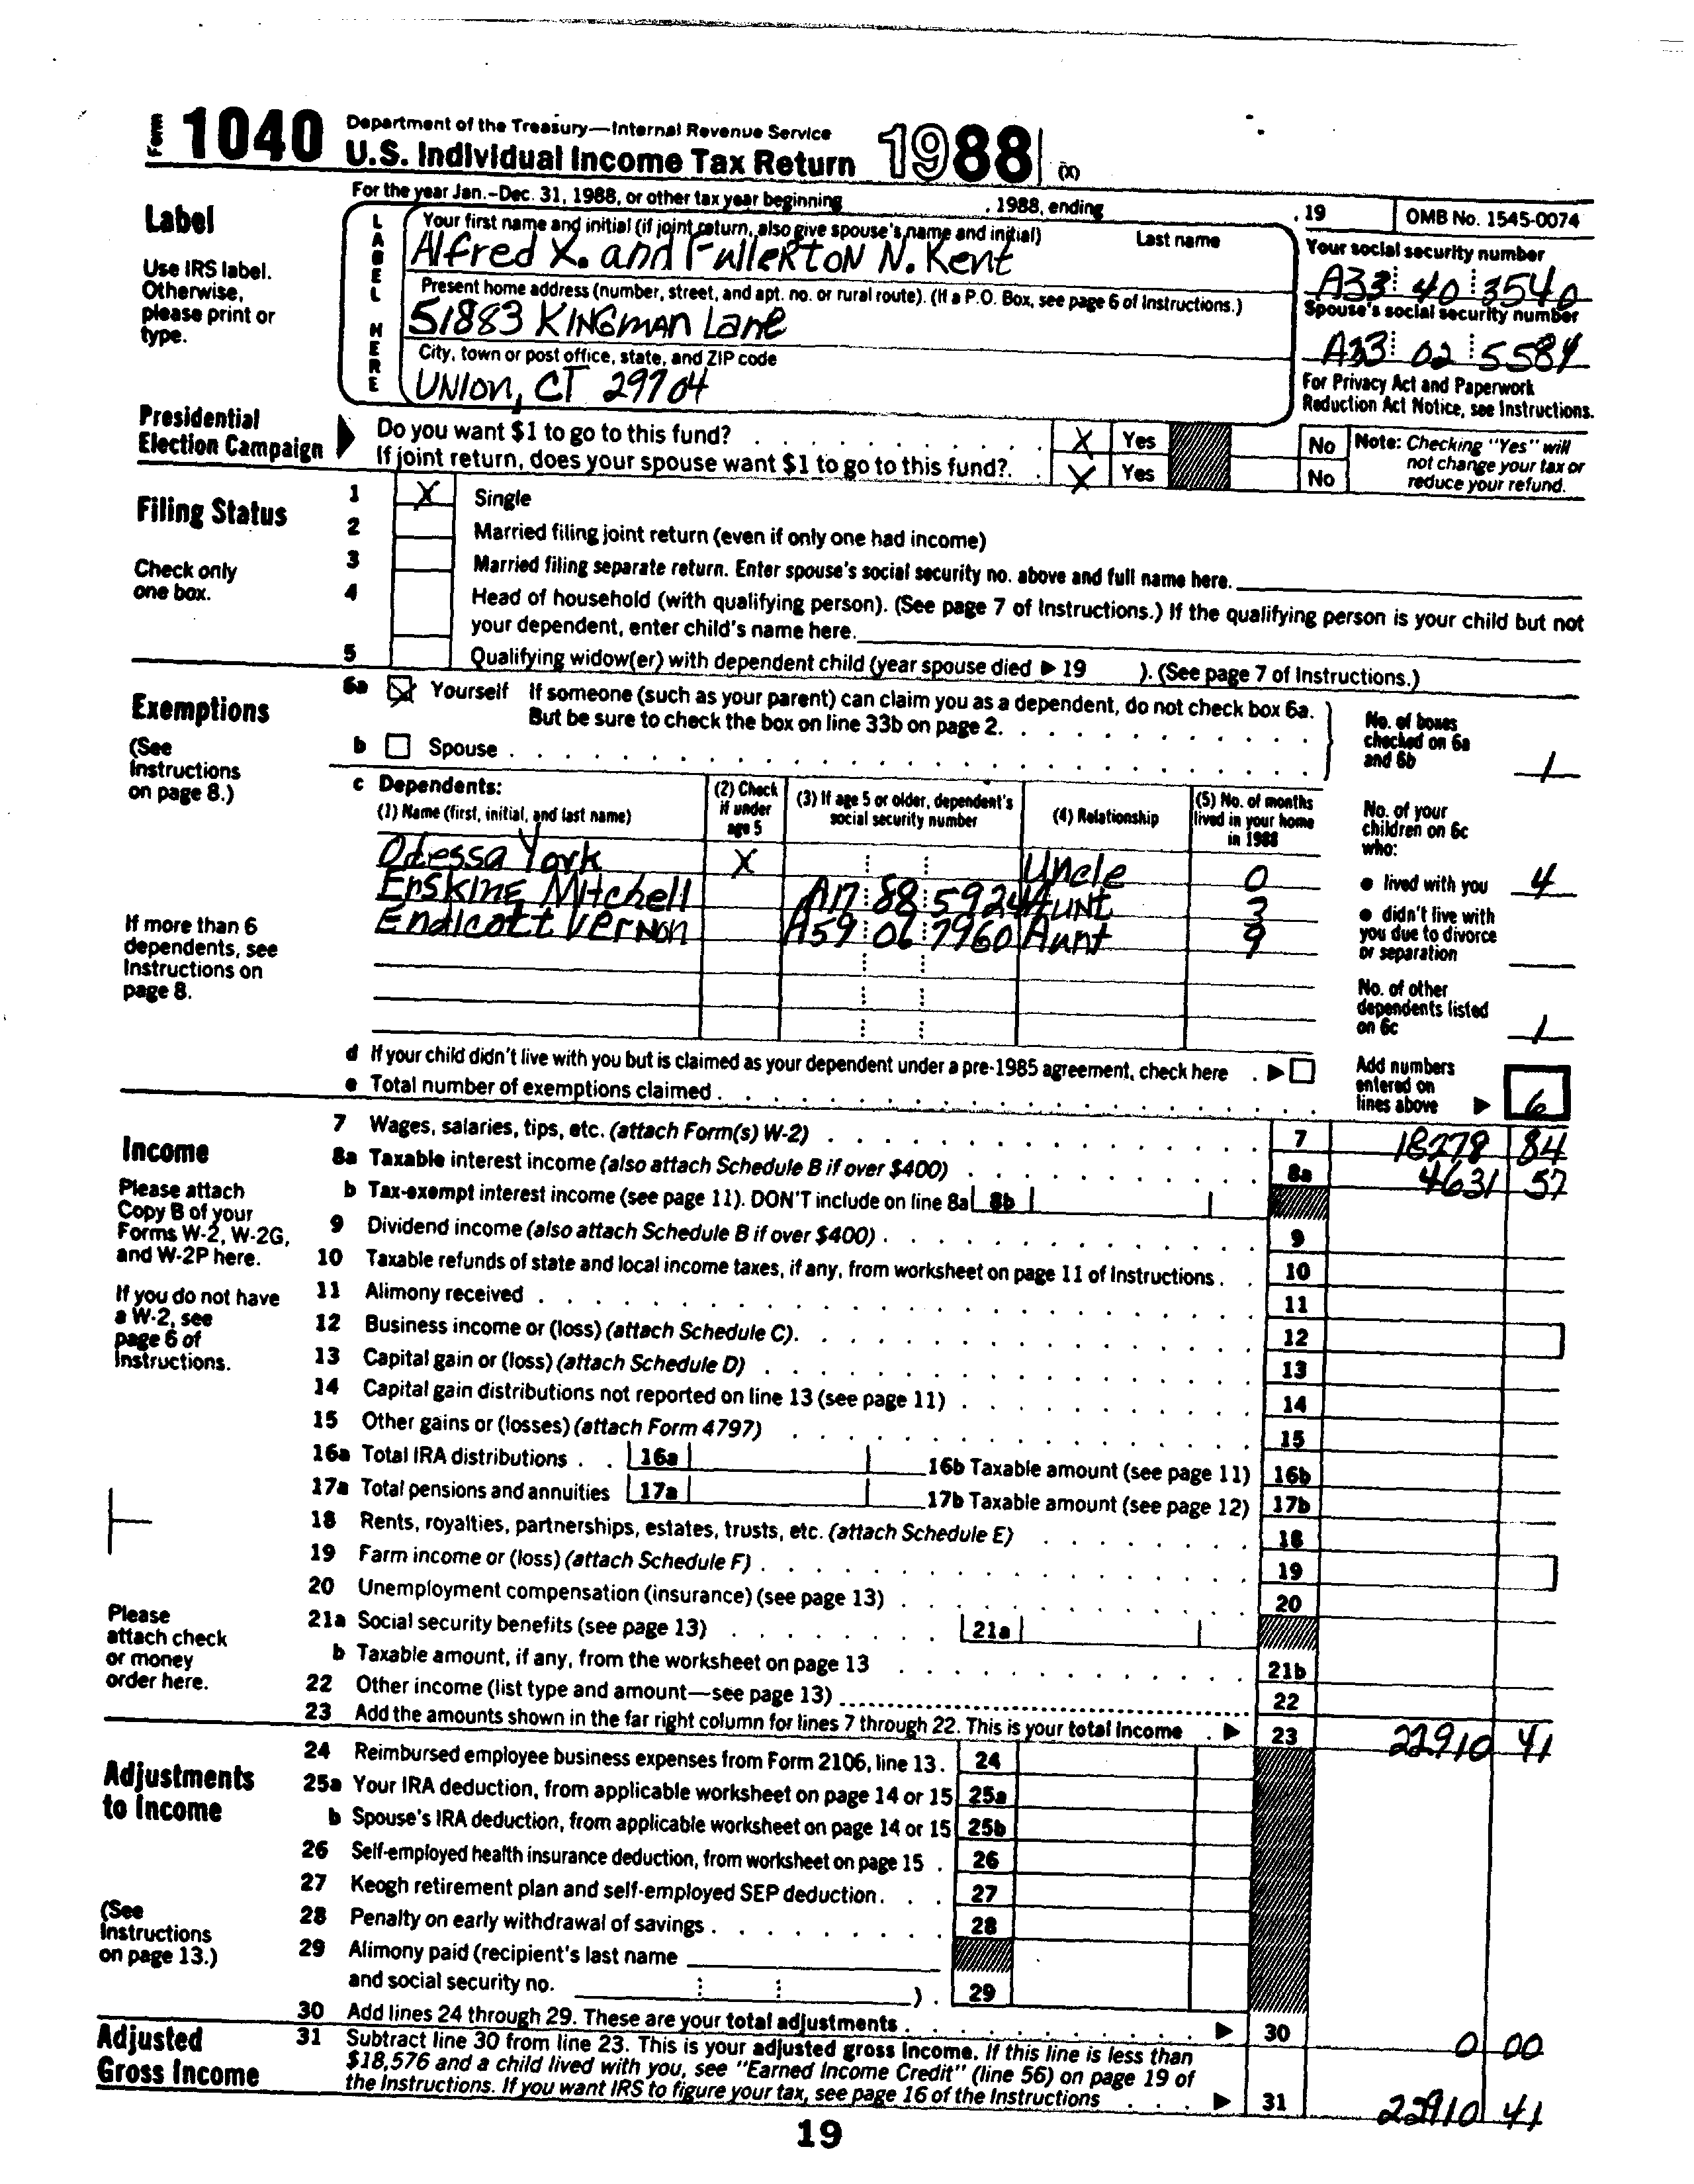 Form 1040 Department of the Treasury—Internal Revenue Service
U.S. Individual Income Tax Return 1988 (X)
For the year Jan.-Dec. 31, 1988, or other tax year beginning , 1988, ending , 19 OMB No. 1545-0074
Label
Use IRS label.
Otherwise,
please print or
type.
LABEL HERE
Your first name and initial (if joint return, also give spouse's name and initial) Last name
Alfred X. and Fullerton N. Kent
Your social security number
A33 40 3540
Present home address (number, street, and apt. no. or rural route). (If a P.O. Box, see page 6 of Instructions.)
51883 Kingman Lane
Spouse's social security number
A33 02 5584
City, town or post office, state, and ZIP code
Union, CT 29704
For Privacy Act and Paperwork
Reduction Act Notice, see Instructions.
Presidential
Election Campaign
Do you want $1 to go to this fund? X Yes No
If joint return, does your spouse want $1 to go to this fund? X Yes No
Note: Checking "Yes" will
not change your tax or
reduce your refund.
Filing Status
Check only
one box.
1 X Single
2 Married filing joint return (even if only one had income)
3 Married filing separate return. Enter spouse's social security no. above and full name here.
4 Head of household (with qualifying person). (See page 7 of Instructions.) If the qualifying person is your child but not
your dependent, enter child's name here.
5 Qualifying widow(er) with dependent child (year spouse died ▶ 19 ). (See page 7 of Instructions.)
Exemptions
(See
Instructions
on page 8.)
If more than 6
dependents, see
Instructions on
page 8.
6a X Yourself If someone (such as your parent) can claim you as a dependent, do not check box 6a.
But be sure to check the box on line 33b on page 2.
b Spouse
No. of boxes
checked on 6a
and 6b 1
c Dependents:
(1) Name (first, initial, and last name)
(2) Check
if under
age 5
(3) If age 5 or older, dependent's
social security number
(4) Relationship
(5) No. of months
lived in your home
in 1988
Odessa York X Uncle 0
Erskine Mitchell A17 88 5924 Aunt 3
Endicott Vernon A59 06 7960 Aunt 9
No. of your
children on 6c
who:
● lived with you 4
● didn't live with
you due to divorce
or separation
No. of other
dependents listed
on 6c 1
d If your child didn't live with you but is claimed as your dependent under a pre-1985 agreement, check here ▶
e Total number of exemptions claimed
Add numbers
entered on
lines above ▶ 6
Income
Please attach
Copy B of your
Forms W-2, W-2G,
and W-2P here.
If you do not have
a W-2, see
page 6 of
Instructions.
Please
attach check
or money
order here.
7 Wages, salaries, tips, etc. (attach Form(s) W-2) 7 18278 84
8a Taxable interest income (also attach Schedule B if over $400) 8a 4631 57
b Tax-exempt interest income (see page 11). DON'T include on line 8a 8b
9 Dividend income (also attach Schedule B if over $400) 9
10 Taxable refunds of state and local income taxes, if any, from worksheet on page 11 of Instructions 10
11 Alimony received 11
12 Business income or (loss) (attach Schedule C) 12
13 Capital gain or (loss) (attach Schedule D) 13
14 Capital gain distributions not reported on line 13 (see page 11) 14
15 Other gains or (losses) (attach Form 4797) 15
16a Total IRA distributions 16a 16b Taxable amount (see page 11) 16b
17a Total pensions and annuities 17a 17b Taxable amount (see page 12) 17b
18 Rents, royalties, partnerships, estates, trusts, etc. (attach Schedule E) 18
19 Farm income or (loss) (attach Schedule F) 19
20 Unemployment compensation (insurance) (see page 13) 20
21a Social security benefits (see page 13) 21a
b Taxable amount, if any, from the worksheet on page 13 21b
22 Other income (list type and amount—see page 13) 22
23 Add the amounts shown in the far right column for lines 7 through 22. This is your total income ▶ 23 22910 41
Adjustments
to Income
(See
Instructions
on page 13.)
24 Reimbursed employee business expenses from Form 2106, line 13. 24
25a Your IRA deduction, from applicable worksheet on page 14 or 15 25a
b Spouse's IRA deduction, from applicable worksheet on page 14 or 15 25b
26 Self-employed health insurance deduction, from worksheet on page 15 26
27 Keogh retirement plan and self-employed SEP deduction 27
28 Penalty on early withdrawal of savings 28
29 Alimony paid (recipient's last name
and social security no. ) 29
30 Add lines 24 through 29. These are your total adjustments ▶ 30 0 00
Adjusted
Gross Income
31 Subtract line 30 from line 23. This is your adjusted gross income. If this line is less than
$18,576 and a child lived with you, see "Earned Income Credit" (line 56) on page 19 of
the Instructions. If you want IRS to figure your tax, see page 16 of the Instructions ▶ 31 22910 41
19